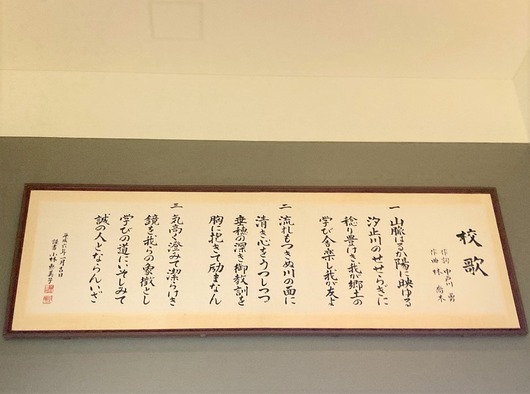 校歌
作詞 中西川 勇
作曲 林 喬木
一 山脈はるか陽に映ゆる
汐止川のせせらぎに
稔り豊けき我が郷土の
学び舎楽し我が友よ
二 流れもつきぬ川の面に
清き心をうつしつつ
垂穂の深き御教訓を
胸に抱きて励まなん
三 気高く澄みて潔らけき
鏡を我らの象徴とし
学びの道にいそしみて
誠の人とならんいざ
平成六年 月吉日